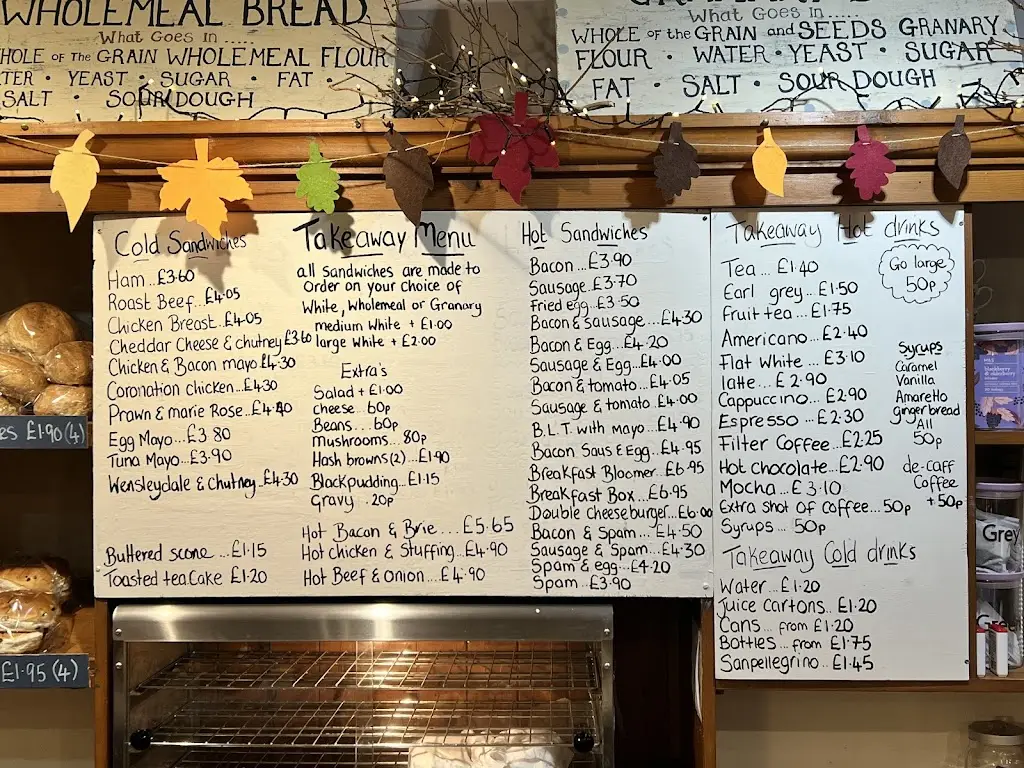 WHOLEMEAL BREAD
What Goes in.....
WHOLE OF the GRAIN WHOLEMEAL FLOUR
YEAST · SUGAR · FAT ·
SALT · SOURDOUGH
What Goes in.....
WHOLE of the GRAIN and SEEDS GRANARY
FLOUR · WATER · YEAST · SUGAR
FAT · SALT · SOURDOUGH
Cold Sandwiches
Ham...£3.60
Roast Beef...£4.05
Chicken Breast...£4.05
Cheddar Cheese & chutney £3.60
Chicken & Bacon mayo £4.30
Coronation chicken...£4.30
Prawn & marie Rose...£4.40
Egg Mayo...£3.80
Tuna Mayo...£3.90
Wensleydale & chutney..£4.30
Buttered scone ...£1.15
Toasted tea Cake £1.20
Takeaway Menu
all Sandwiches are made to
Order on your choice of
White, Wholemeal or Granary
medium White + £1.00
large White + £2.00
Extra's
Salad + £1.00
cheese.. 60p
Beans... 60p
mushrooms.. 80p
Hash browns (2)...£1.90
Blackpudding...£1.15
Gravy .. 20p
Hot Bacon & Brie.... £5.65
Hot chicken & Stuffing...£4.90
Hot Beef & onion...£4.90
Hot Sandwiches
Bacon...£3.90
Sausage...£3.70
Fried egg...£3.50
Bacon & sausage...£4.30
Bacon & Egg...£4.20
Sausage & Egg...£4.00
Bacon & tomato...£4.05
Sausage & tomato £4.00
B.L.T. with mayo...£4.90
Bacon Saus & Egg...£4.95
Breakfast Bloomer...£6.95
Breakfast Box...£6.95
Double cheeseburger...£6.00
Bacon & Spam...£4.50
Sausage & Spam...£4.30
Spam & egg...£4.20
Spam...£3.90
Takeaway Hot drinks
Tea... £1.40
Earl grey...£1.50
fruit tea...£1.75
Americano...£2.40
Flat White...£3.10
latte... £2.90
Cappuccino...£2.90
Espresso...£2.30
Filter Coffee...£2.25
Hot chocolate...£2.90
Mocha... £3.10
Extra shot of coffee...50p
Syrups... 50p
Go large
50p
Syrups
Caramel
Vanilla
Amaretto
gingerbread
All
50p
de-caff
Coffee
+50p
Takeaway Cold drinks
Water...£1.20
Juice Cartons.. £1.20
Cans... from £1.20
Bottles... from £1.75
Sanpellegrino...£1.45
£1.90 (4)
£1.95 (4)
Grey